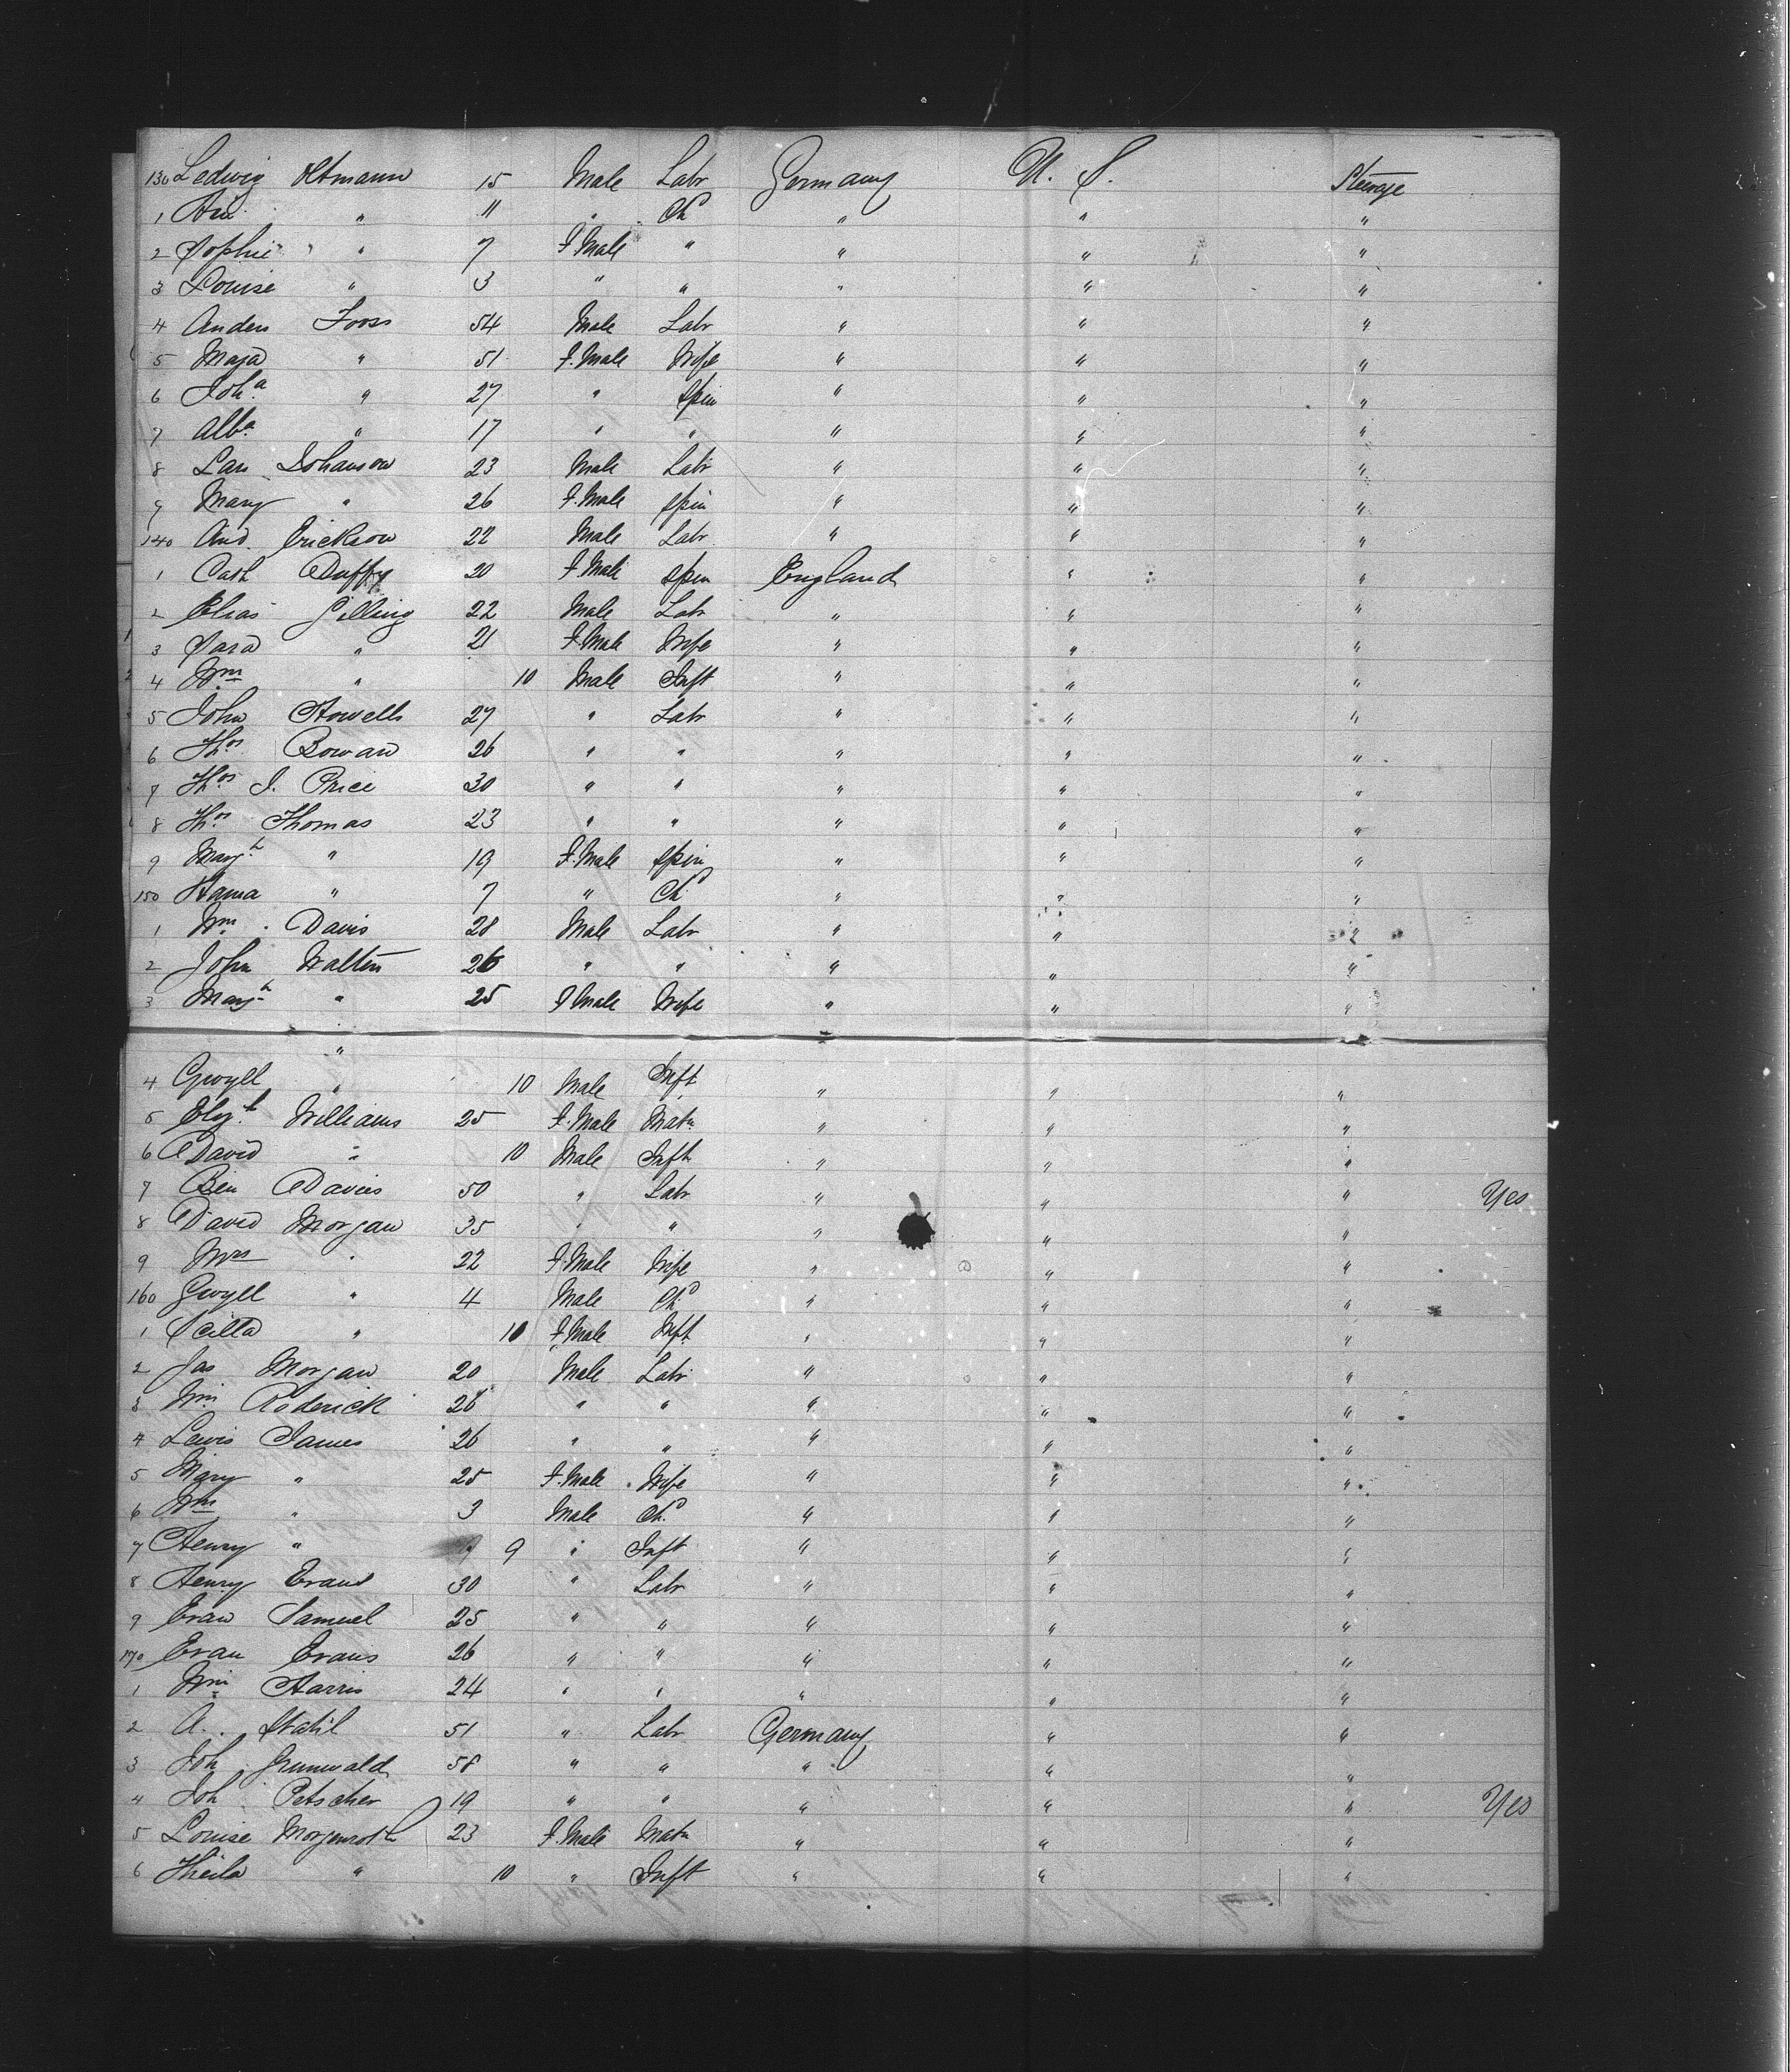 130 Ledwig Oltmann 15 Male Labr Germany U. S. Steerage
1 " 11 " Chd " " "
2 Sophie " 7 F. Male " " " "
3 Louise " 3 " " " " "
4 Anders Foss 54 Male Labr " " "
5 Maja " 51 F. Male Wife " " "
6 Joha " 27 " Spin " " "
7 Alba " 17 " " " " "
8 Lars Johanson 23 Male Labr " " "
9 Mary " 26 F. Male Spin " " "
140 And. Erickson 22 Male Labr " " "
1 Cath Duffy 20 F. Male Spin England " "
2 Elias Gilling 22 Male Labr " " "
3 Sara " 21 F. Male Wife " " "
4 Wm " 10 Male Inft " " "
5 John Howells 27 " Labr " " "
6 Thos Bowan 26 " " " " "
7 Thos J. Price 30 " " " " "
8 Thos Thomas 23 " " " " "
9 Margt " 19 F. Male Spin " " "
150 Hanna " 7 " Chd " " "
1 Wm Davis 28 Male Labr " " "
2 John Walters 26 " " " " "
3 Margt " 25 F Male Wife " " "
"
4 Gwyll " 10 Male Inft " " "
5 Elizt Williams 25 F. Male Matn " " "
6 David " 10 Male Inft " " "
7 Ben Davies 50 " Labr " " " Yes
8 David Morgan 35 " " " " "
9 Mrs " 22 F. Male Wife " " "
160 Gwyll " 4 Male Chd " " "
1 Scilla " 10 F. Male Inft " " "
2 Jas Morgan 20 Male Labr " " "
3 Wm Roderick 26 " " " " "
4 Lewis James 26 " " " " "
5 Mary " 25 F. Male Wife " " "
6 Wm " 3 Male Chd " " "
7 Henry " 9 " Inft " " "
8 Henry Evans 30 " Labr " " "
9 Evan Samuel 25 " " " " "
170 Evan Evans 26 " " " " "
1 Wm Harris 24 " " " " "
2 A. Stahl 51 " Labr Germany " "
3 Joh Grunwald 58 " " " " "
4 Joh Petscher 19 " " " " " Yes
5 Louise Morgenroth 23 F. Male Matn " " "
6 Theila " 10 " Inft " " "